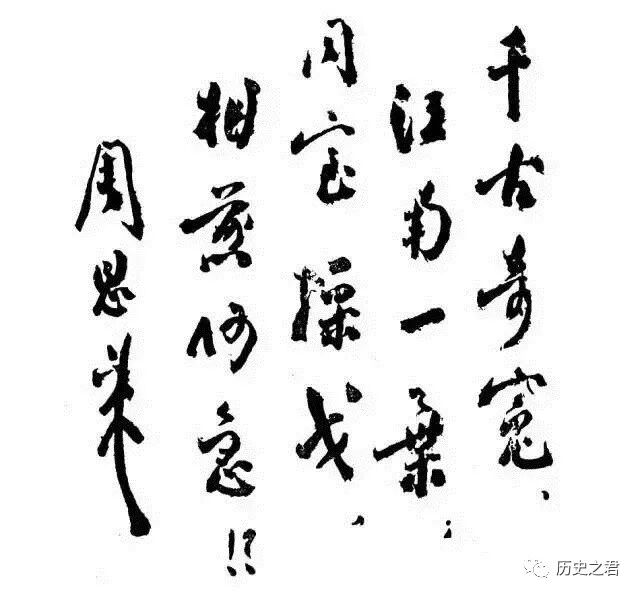 千古奇冤、
江南一葉；
同室操戈，
相煎何急！？
周恩来
历史之君